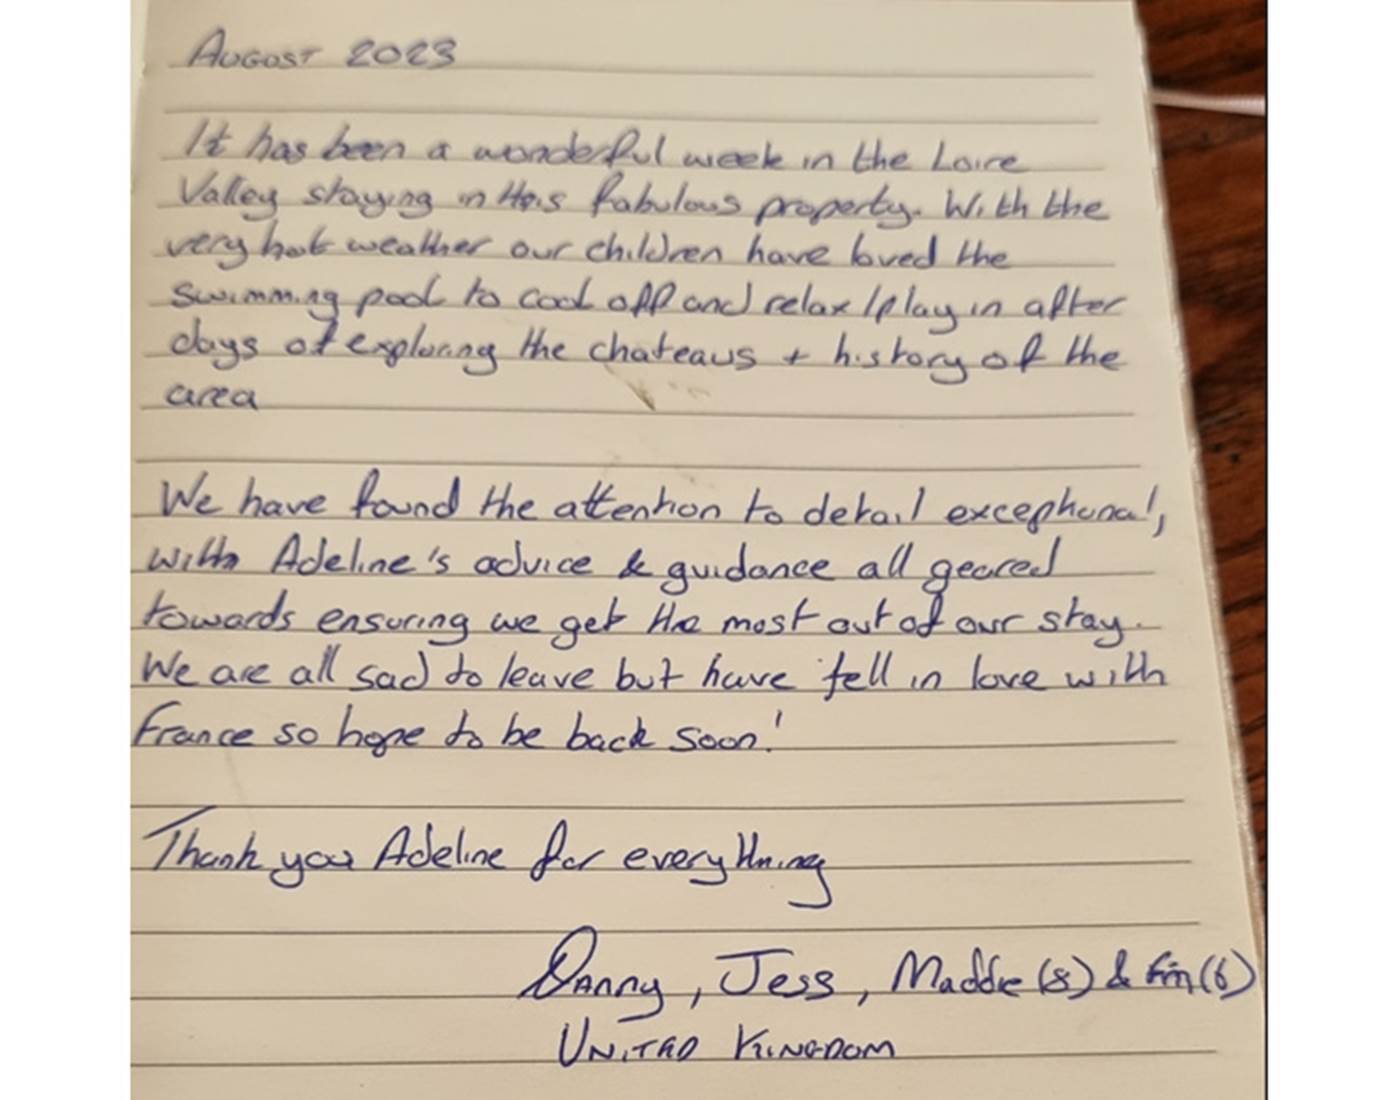 AUGUST 2023
It has been a wonderful week in the Loire
Valley staying in this fabulous property. With the
very hot weather our children have loved the
swimming pool to cool off and relax/play in after
days of exploring the chateaus + history of the
area
We have found the attention to detail exceptional,
with Adeline's advice & guidance all geared
towards ensuring we get the most out of our stay.
We are all sad to leave but have fell in love with
France so hope to be back soon!
Thank you Adeline for everything
Danny, Jess, Maddie (8) & Fin (6)
UNITED KINGDOM